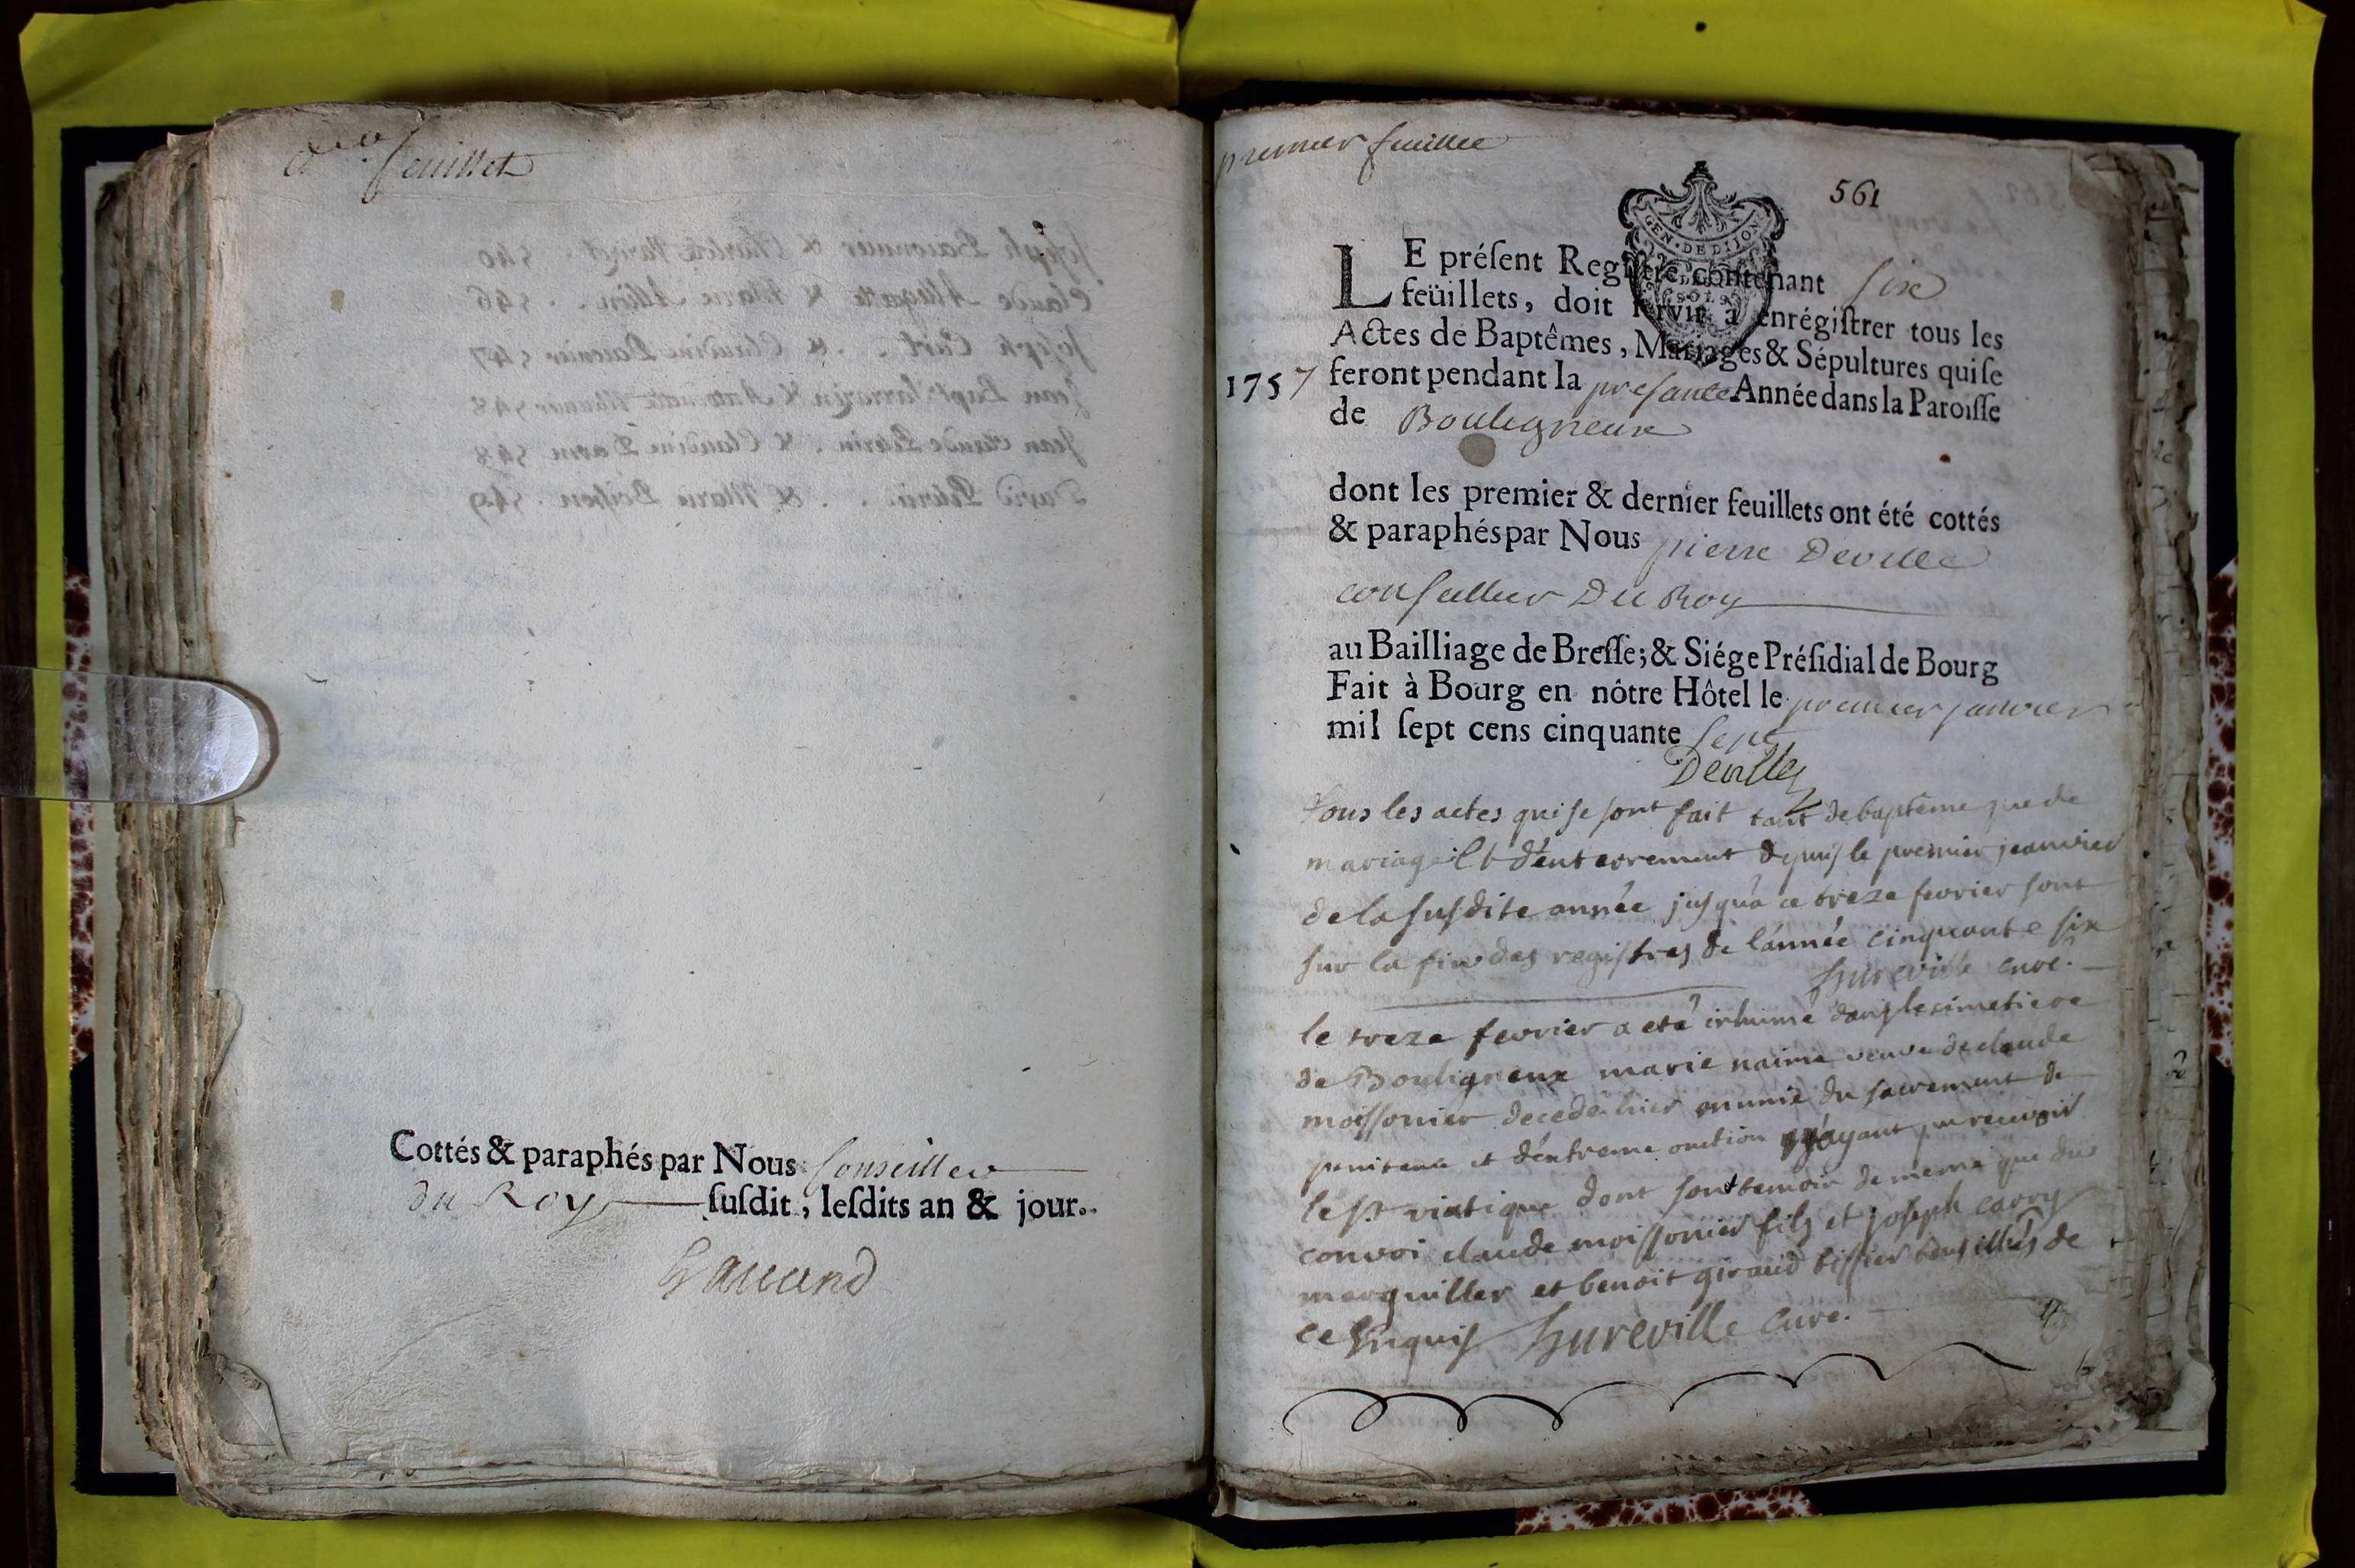 feuillet
Cottés & paraphés par Nous Conseiller
du Roy susdit, lesdits an & jour.
premier feuillet
561
GEN. DE DIJON
LE présent Registre contenant six
feüillets, doit servir à enrégistrer tous les
Actes de Baptêmes, Mariages & Sépultures qui se
1757 feront pendant la presante Année dans la Paroisse
de Bouligneux
dont les premier & dernier feuillets ont été cottés
& paraphés par Nous pierre Deville
conseiller Du Roy
au Bailliage de Bresse; & Siége Présidial de Bourg
Fait à Bourg en nôtre Hôtel le premier janvier
mil sept cens cinquante sept
Deville
tous les actes qui se sont fait tant de baptême que de
mariage et d'enterrement depuis le premier jeanvier
de la susdite année jusqu'a ce treze fevrier sont
sur la fin des registres de l'année cinquante six
hureville curé.
le treze fevrier a eté inhumé dans le cimetiere
de Bouligneux marie naime veuve de claude
moissonier decedé hier munie du sacrement de
penitence et d'extreme onction ayant pu recevoir
le st viatique dont sont temoin de meme que du
convoi claude moissonier fils et joseph carry
marguiller et benoit giraud tissier tous illits de
ce enquis hureville curé.